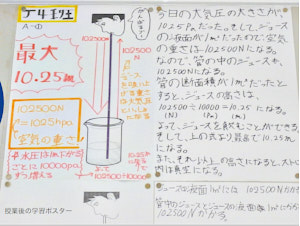 J4理
A-①
最大
10.25m
102500N
=1025hPa
空気の重さ
水圧は1m下がる
ごとに10000Pa
ずつ増える
がんばるぞー
102500N
102500
N
ジュース
大気圧と
今日の大気圧の大きさが
1025hPaだった。そして、ジュース
の液面が1m²だったので空気
の重さは102500Nになる。
なので、管の中のジュースも、
102500Nになる。
管の断面積が1m²だったと
すると、ジュースの高さは、
102500÷10000=10.25
(N) (Pa) (m)
よって、ジュースを飲むことができる
そして、上の式より最高で10.25m
になる。
また、それ以上の高さになると、ストローの
内は真空になる。
ジュースの液面1m²には 102500Nかかる。
102500Nかかる。
授業後の学習ポスター